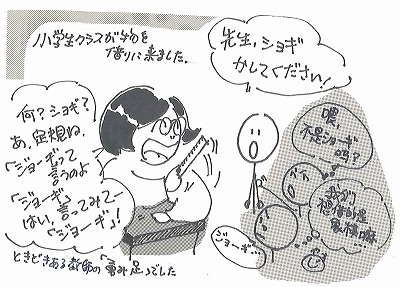 小学生クラスが物を
借りに来ました.
先生,ショギ
かしてください!
何?ショギ?
あ,定規ね.
「ジョーギ」って
言うのよ
「ジョーギ」言ってみてー
はい,「ジョーギ」!
嗯,
不是ショーギ
吗?
我们
想借的是
象棋嘛…
ジョーギ…
ときどきある教師の「勇み足」でした